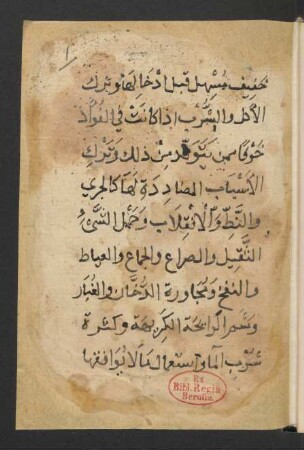 خفيف مسهل قبل ادخالها وترك
الاكل والشرب اذا كانت في الفؤاد
خوفا ممن يتولد من ذلك وترك
الاسباب المضاددة لها كالجري
والنط والانقلاب وحمل الشيء
الثقيل والصراع والجماع والعياط
والنفخ ومجاورة الدخان والغبار
وشم الرايحة الكريهة وكثرة
شرب الما واستعمال ما لا يوافقها
Ex
Bibl. Regia
Berolin.